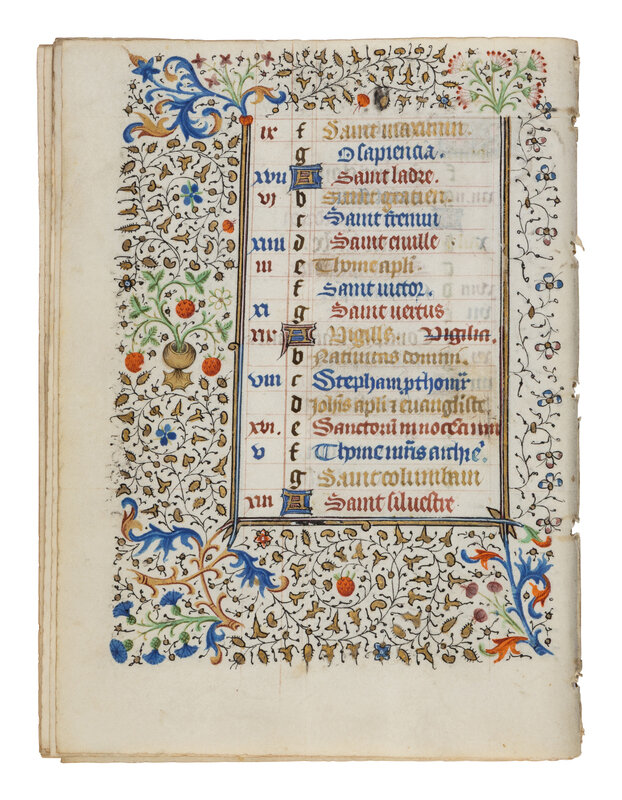 ix f Saint maximin.
g O sapiencia.
xvii A Saint ladre.
vi b Saint gracien.
c Saint fremin
xiiii d Saint
iii e Thome apli.
f Saint victor.
xi g Saint vertus
xix A Vigille. Vigilia.
b Nativitas domini.
viii c Stephani
d Johis apli ⁊ euangliste
xvi. e Sanctorum innocentium
v f Thome mris archie.
g Saint columbain
xiii A Saint silvestre